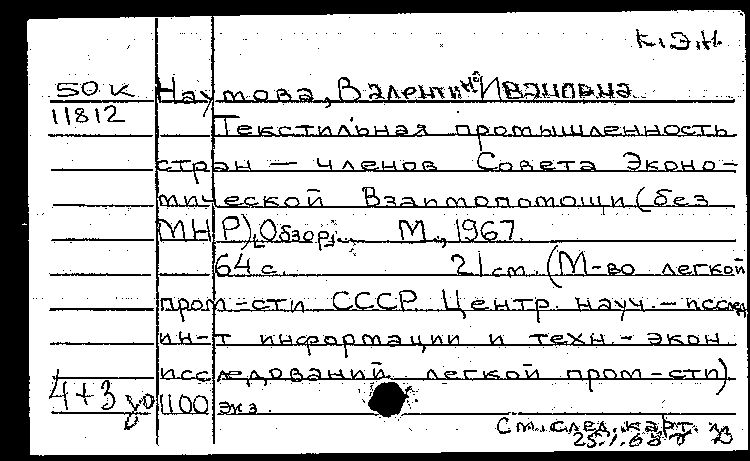 К.Э.Н
50 К Наумова, Валентина Ивановна
11812 Текстильная промышленность
стран — членов Совета Эконо-
мической Взаимопомощи (без
МНР). Обзор. М., 1967.
64 с. 21 см. (М-во легкой
пром-сти СССР. Центр. науч.-исслед.
ин-т информации и техн.-экон.
исследований легкой пром-сти)
4+3 1100 экз.
См. след. карт.